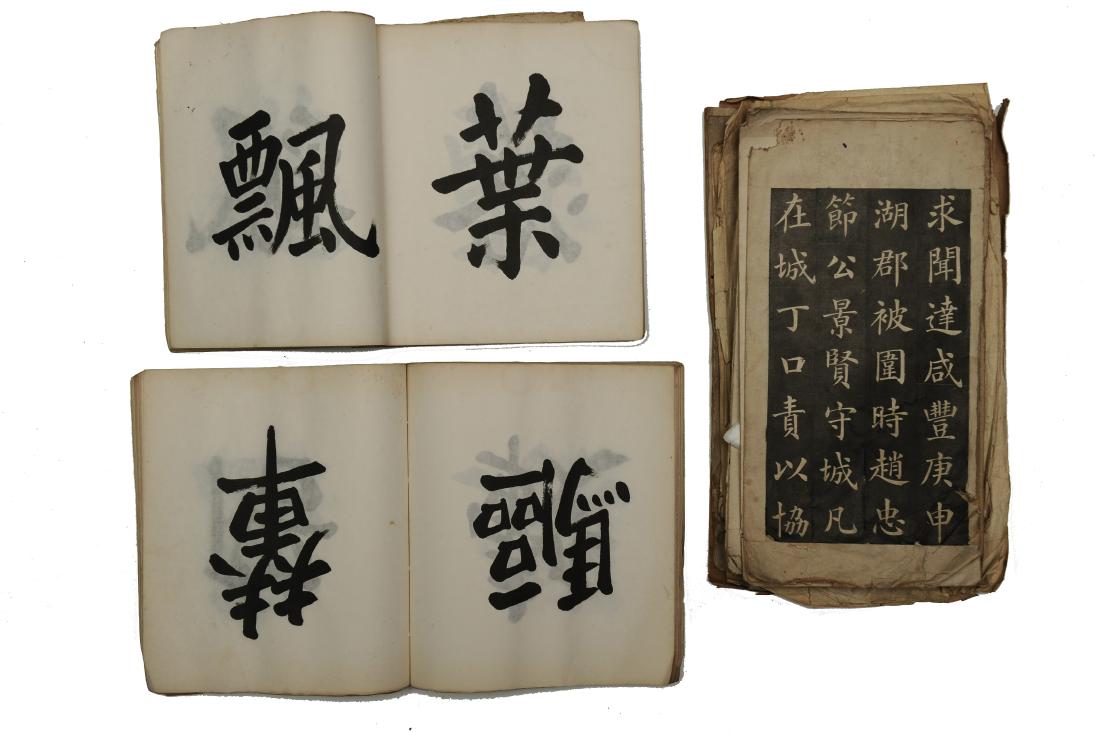 葉
飄
輦
驅
求聞達咸豐庚申
湖郡被圍時趙忠
節公景賢守城凡
在城丁口責以協